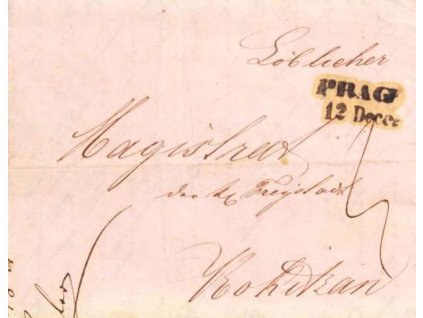 Löblicher
PRAG
12 Dece
Magistrat
der k Freystadt
Rokitzan